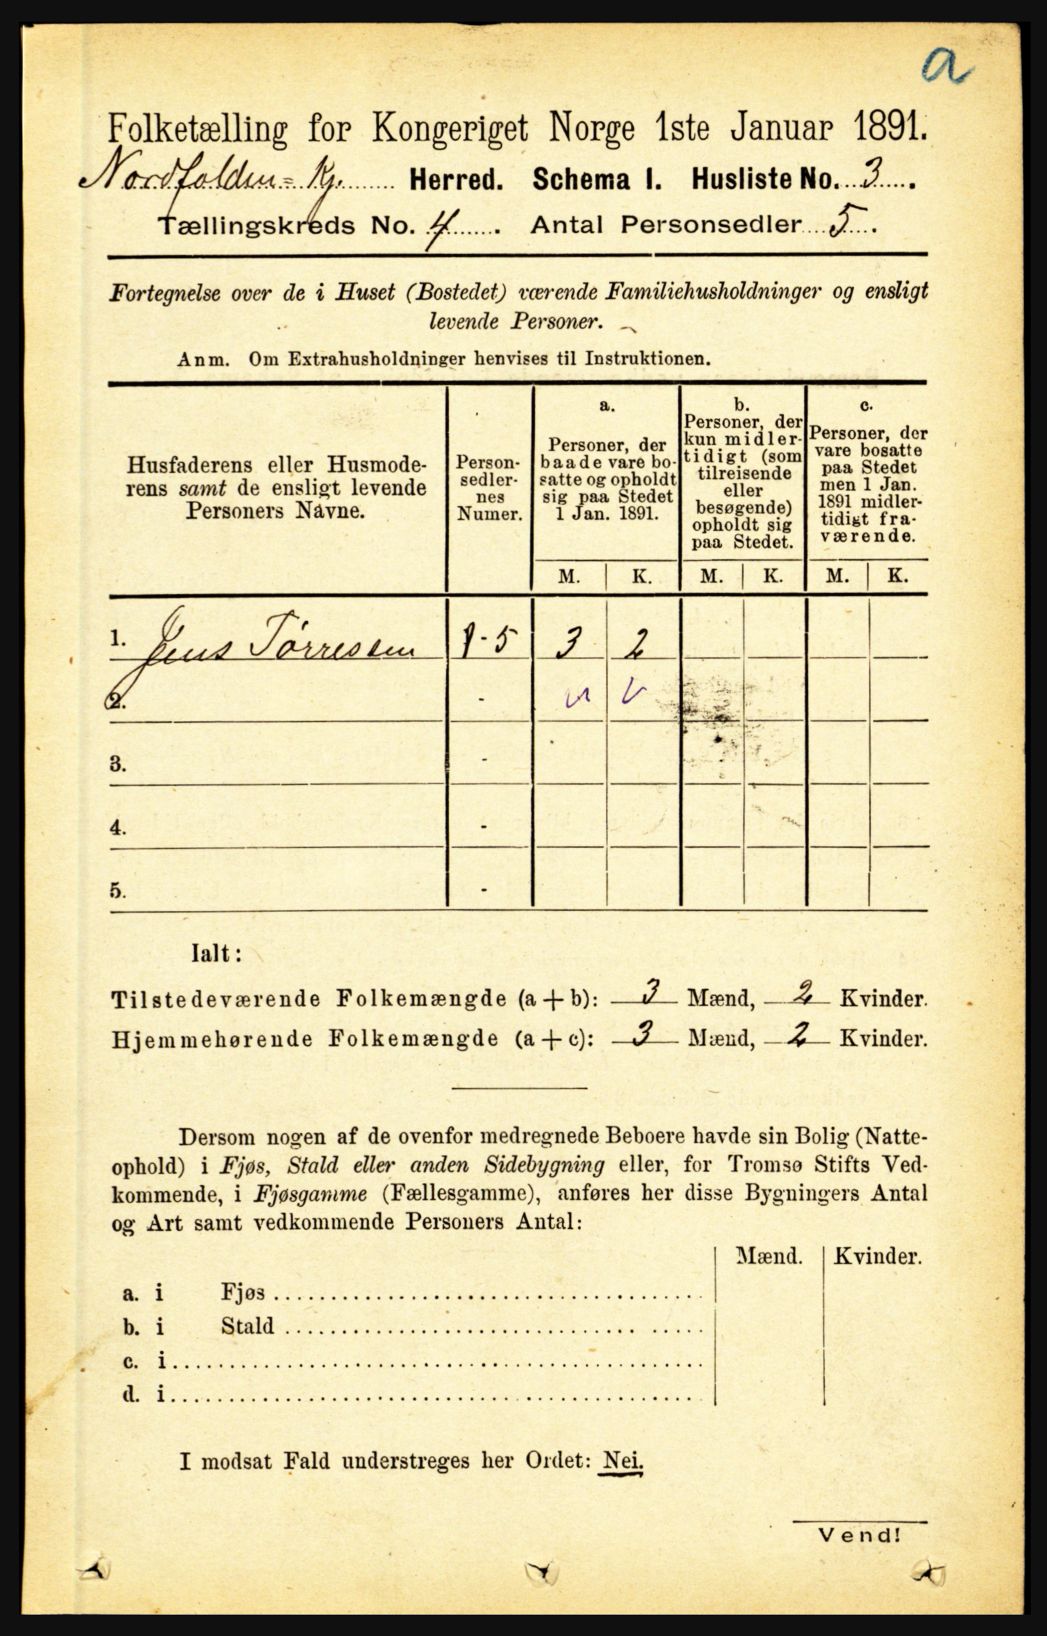 a
Folketælling for Kongeriget Norge 1ste Januar 1891.
Nordfolden=Kj. Herred. Schema I. Husliste No. 3.
Tællingskreds No. 4. Antal Personsedler 5.
Fortegnelse over de i Huset (Bostedet) værende Familiehusholdninger og ensligt
levende Personer.
Anm. Om Extrahusholdninger henvises til Instruktionen.
Husfaderens eller Husmode-
rens samt de ensligt levende
Personers Navne.
Person-
sedler-
nes
Numer.
a.
Personer, der
baade vare bo-
satte og opholdt
sig paa Stedet
1 Jan. 1891.
b.
Personer, der
kun midler-
tidigt (som
tilreisende
eller
besøgende)
opholdt sig
paa Stedet.
c.
Personer, der
vare bosatte
paa Stedet
men 1 Jan.
1891 midler-
tidigt fra-
værende.
M. K. M. K. M. K.
1. Jens Tørressen 1-5 3 2
2. -
3. -
4. -
5. -
Ialt:
Tilstedeværende Folkemængde (a + b): 3 Mænd, 2 Kvinder.
Hjemmehørende Folkemængde (a + c): 3 Mænd, 2 Kvinder.
Dersom nogen af de ovenfor medregnede Beboere havde sin Bolig (Natte-
ophold) i Fjøs, Stald eller anden Sidebygning eller, for Tromsø Stifts Ved-
kommende, i Fjøsgamme (Fællesgamme), anføres her disse Bygningers Antal
og Art samt vedkommende Personers Antal:
Mænd. Kvinder.
a. i Fjøs
b. i Stald
c. i
d. i
I modsat Fald understreges her Ordet: Nei.
Vend!